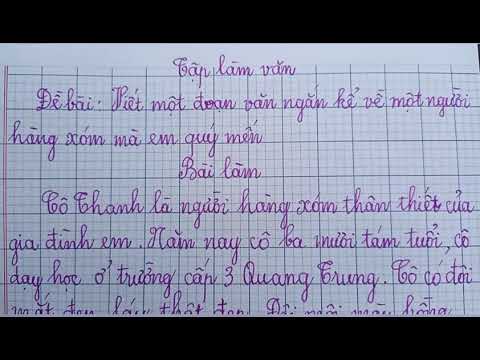 Tập làm văn
Đề bài: Viết một đoạn văn ngắn kể về một người
hàng xóm mà em quý mến
Bài làm
Cô Thanh là người hàng xóm thân thiết của
gia đình em. Năm nay cô ba mươi tám tuổi, cô
dạy học ở trường cấp 3 Quang Trung. Cô có đôi
mắt đen láy thật đẹp. Đôi môi màu hồng